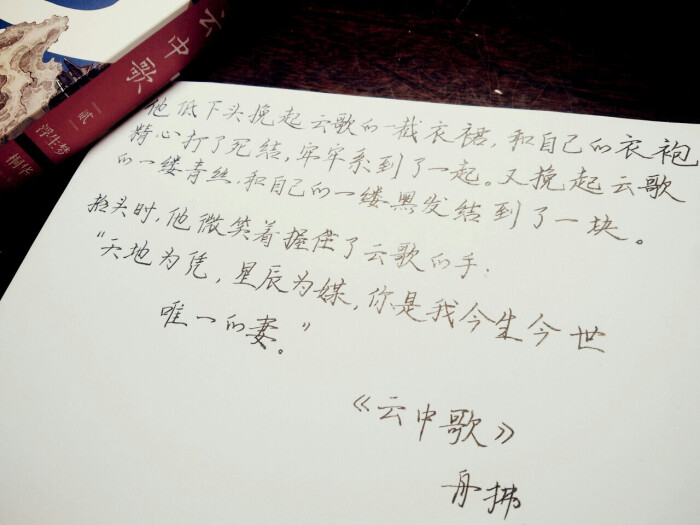 云中歌
贰
浮生梦
桐华
他低下头挽起云歌的一截衣裙，和自己的衣袍
精心打了死结，牢牢系到了一起。又挽起云歌
的一缕青丝，和自己的一缕黑发结到了一块。
抬头时，他微笑着握住了云歌的手．
“天地为凭，星辰为媒，你是我今生今世
唯一的妻。”
《云中歌》
舟拂